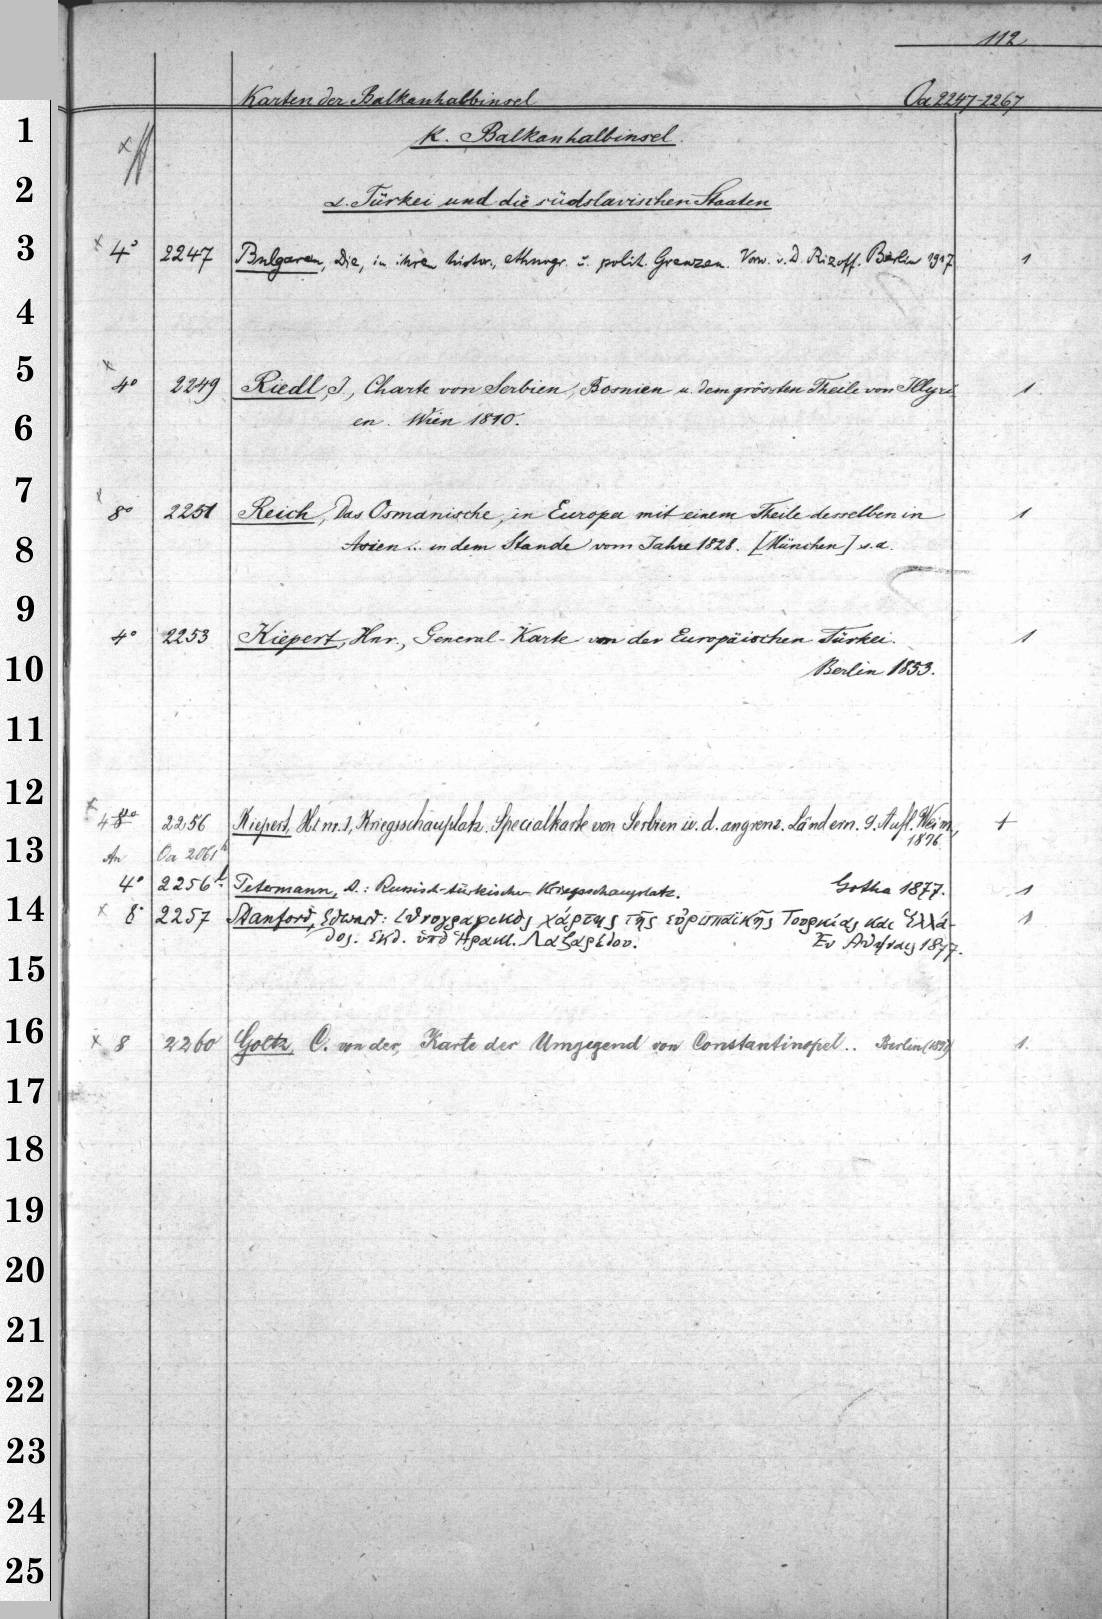 112
Karten der Balkanhalbinsel Oa 2247-2267
1
K. Balkanhalbinsel.
2
α. Türkei und die südslavischen Staaten
3
× 4° 2247 Bulgaren, Die, in ihren histor., ethnogr. u. polit. Grenzen. Vorw. v. D. Rizoff. Berlin 1917 1
4
5
× 4° 2249 Riedl, J., Charte von Serbien, Bosnien u. dem grössten Theile von Illyri- 1
6
en. Wien 1810.
7
8° 2251 Reich, Das Osmanische, in Europa mit einem Theile desselben in 1
8
Asien... in dem Stande vom Jahre 1828. [München] s.a.
9
4° 2253 Kiepert, Hnr., General-Karte von der Europäischen Türkei. 1
10
Berlin 1853.
11
12
× 4 2256 Kiepert, Hnr., Kriegsschauplatz. Specialkarte von Serbien u. d. angrenz. Ländern. 9. Aufl. Weim., +
13
1876.
An Oa 2061
4° 2256 b. Petermann, A.: Russisch-türkischer Kriegsschauplatz. Gotha 1877. 1
14
× 8° 2257 Stanford, Edward: Ἐθνογραφικὸς χάρτης τῆς εὐρωπαϊκῆς Τουρκίας και Ἑλλά- 1
δος. Ἐκδ. ὑπὸ Ἡρακλ. Λαζαρίδου. Ἐν Ἀθήναις 1877.
15
16
× 8 2260 Goltz, C. von der, Karte der Umgegend von Constantinopel.. Berlin 1.
17
18
19
20
21
22
23
24
25